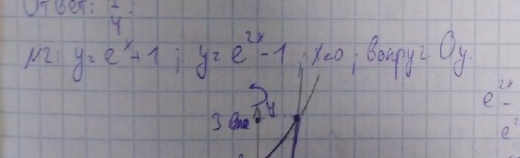 Ответ:
y
№2: y=e^x+1; y=e^{2x}-1; x=0; вокруг Oy.
e^{2x}
3
y
e^2